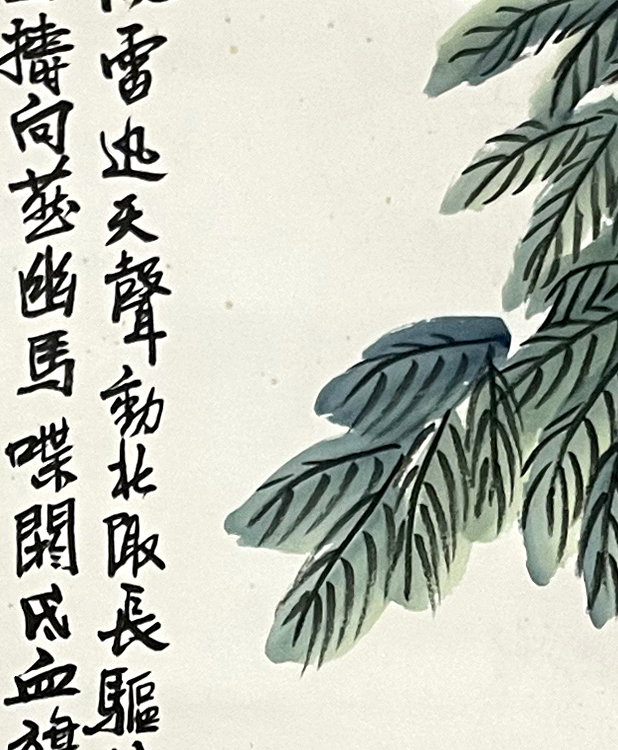 雷迅天聲動北陬長驅
擣向燕幽馬喋閼氏血旗